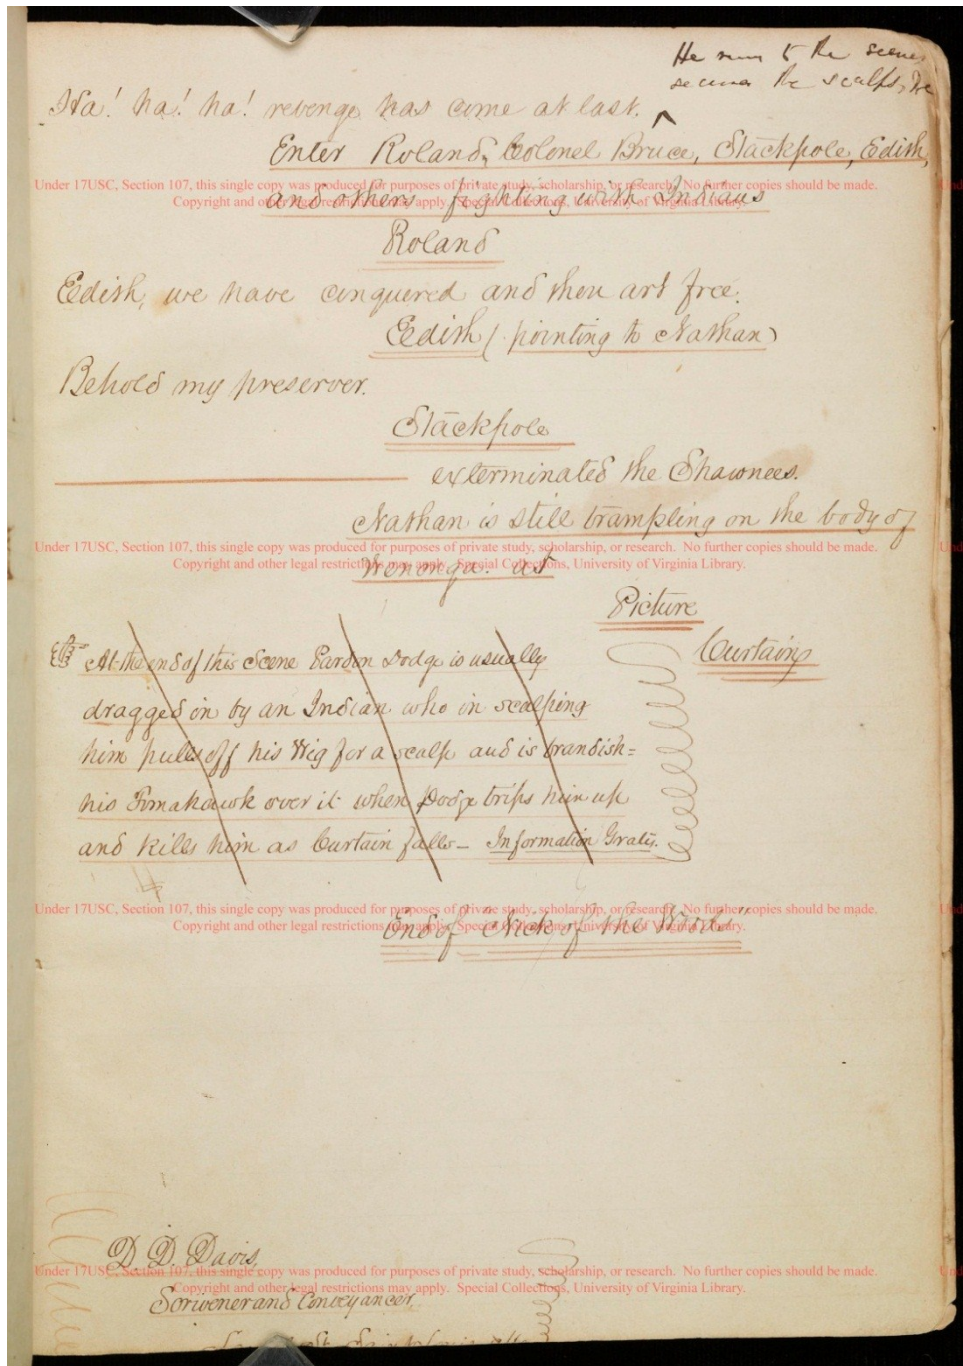 He runs to the scene,
secures the scalps,
Ha! ha! ha! revenge has come at last. ^
Enter Roland, Colonel Bruce, Stackpole, Edith,
and others fighting with Indians
Under 17USC, Section 107, this single copy was produced for purposes of private study, scholarship, or research. No further copies should be made.
Copyright and other legal restrictions may apply. Special Collections, University of Virginia Library.
Roland
Edith, we have conquered and thou art free.
Edith (pointing to Nathan)
Behold my preserver.
Stackpole
exterminated the Shawnees.
Nathan is still trampling on the body of
Under 17USC, Section 107, this single copy was produced for purposes of private study, scholarship, or research. No further copies should be made.
Copyright and other legal restrictions may apply. Special Collections, University of Virginia Library.
Wenonga. as
Picture
Curtain
At the end of this Scene Pardon Dodge is usually
dragged in by an Indian who in scalping
him pulls off his Wig for a scalp and is brandish=
his Tomahawk over it when Dodge trips him up
and kills him as Curtain falls – Information Gratis.
Under 17USC, Section 107, this single copy was produced for purposes of private study, scholarship, or research. No further copies should be made.
Copyright and other legal restrictions may apply. Special Collections, University of Virginia Library.
End of "Nick of the Woods"
D. D. Davis,
Under 17USC, Section 107, this single copy was produced for purposes of private study, scholarship, or research. No further copies should be made.
Copyright and other legal restrictions may apply. Special Collections, University of Virginia Library.
Scrivener and Conveyancer,